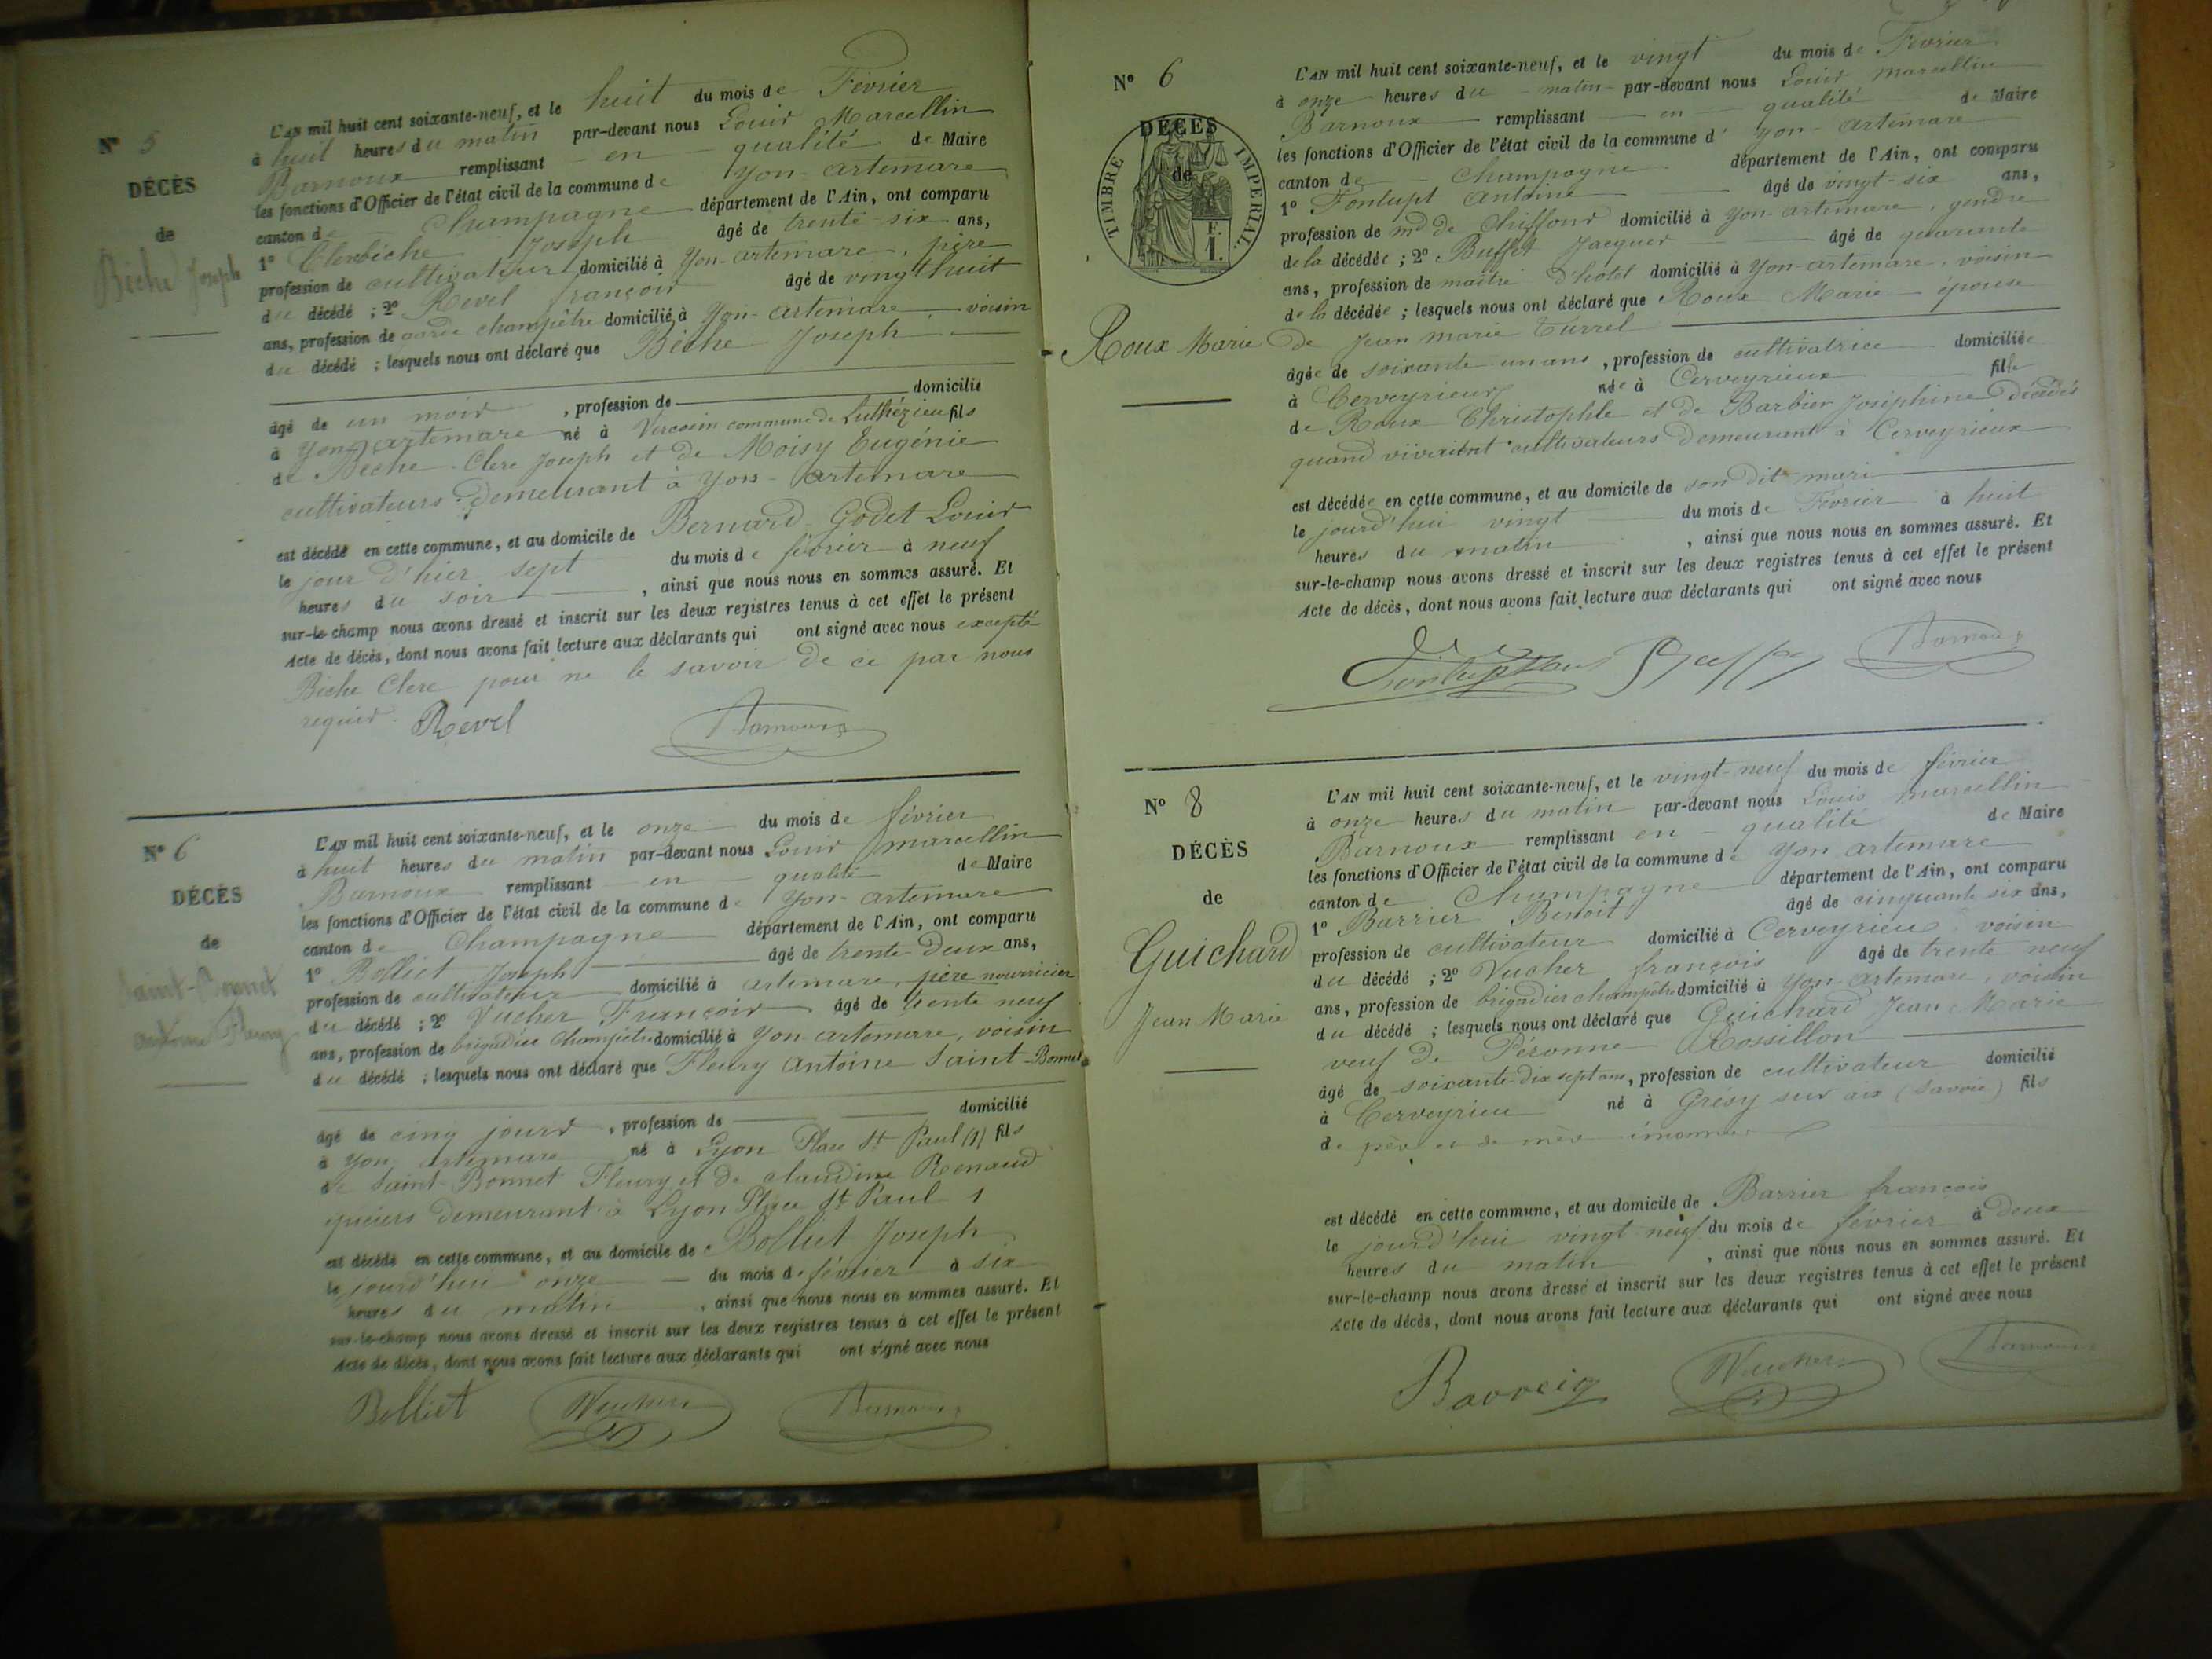 N° 5
DÉCÈS
de
Bèche Joseph
L'AN mil huit cent soixante-neuf, et le huit du mois de Février
à huit heures du matin par-devant nous Louis Marcellin
Barnoux remplissant en qualité de Maire
les fonctions d'Officier de l'état civil de la commune de Yon-artemare
canton de Champagne département de l'Ain, ont comparu
1° Joseph âgé de trente-six ans,
profession de cultivateur domicilié à Yon-artemare, père
du décédé ; 2° Revel françois âgé de vingt huit
ans, profession de garde champêtre domicilié à Yon-artemare, voisin
du décédé ; lesquels nous ont déclaré que Bèche Joseph
âgé de un mois, profession de domicilié
à Yon-artemare né à commune de Luthézieu fils
de Bèche-Clere Joseph et de Moisy Eugénie
cultivateurs demeurant à Yon-artemare
est décédé en cette commune, et au domicile de Bernard Godet Louis
le jour d'hier sept du mois de février à neuf
heures du soir, ainsi que nous nous en sommes assuré. Et
sur-le-champ nous avons dressé et inscrit sur les deux registres tenus à cet effet le présent
Acte de décès, dont nous avons fait lecture aux déclarants qui ont signé avec nous excepté
Bèche Clere pour ne le savoir de ce par nous
requis. Revel Barnoux
N° 6
DÉCÈS
de
Saint-Bonnet
Antoine Fleury
L'AN mil huit cent soixante-neuf, et le onze du mois de février
à huit heures du matin par-devant nous Louis Marcellin
Barnoux remplissant en qualité de Maire
les fonctions d'Officier de l'état civil de la commune de Yon-artemare
canton de Champagne département de l'Ain, ont comparu
1° Bolliet Joseph âgé de trente-deux ans,
profession de cultivateur domicilié à artemare, père nourricier
du décédé ; 2° Vucher François âgé de trente neuf
ans, profession de brigadier champêtre domicilié à Yon-artemare, voisin
du décédé ; lesquels nous ont déclaré que Fleury Antoine Saint-Bonnet
âgé de cinq jours, profession de domicilié
à Yon-artemare né à Lyon Place St Paul (1) fils
de Saint-Bonnet Fleury et de claudine Renaud
épiciers demeurant à Lyon Place St Paul 1
est décédé en cette commune, et au domicile de Bolliet Joseph
le jourd'hui onze du mois de février à six
heures du matin, ainsi que nous nous en sommes assuré. Et
sur-le-champ nous avons dressé et inscrit sur les deux registres tenus à cet effet le présent
Acte de décès, dont nous avons fait lecture aux déclarants qui ont signé avec nous
Bolliet Vucher Barnoux
N° 6
DÉCÈS
de
TIMBRE IMPÉRIAL
F.
1.
Roux Marie
L'AN mil huit cent soixante-neuf, et le vingt du mois de Février
à onze heures du matin par-devant nous Louis Marcellin
Barnoux remplissant en qualité de Maire
les fonctions d'Officier de l'état civil de la commune d' Yon-artemare
canton de Champagne département de l'Ain, ont comparu
1° Fontupt Antoine âgé de vingt-six ans,
profession de md de chiffons domicilié à Yon-artemare, gendre
de la décédée ; 2° Buffet Jacques âgé de quarante
ans, profession de maître d'hotel domicilié à Yon-artemare, voisin
de la décédée ; lesquels nous ont déclaré que Roux Marie épouse
de Jean marie Turrel
âgée de soixante un ans, profession de cultivatrice domiciliée
à Cerveyrieux née à Cerveyrieux fille
de Roux Christophle et de Barbier Joséphine décédés
quand vivaient cultivateurs demeurant à Cerveyrieux
est décédée en cette commune, et au domicile de son dit mari
le jourd'hui vingt du mois de Février à huit
heures du matin, ainsi que nous nous en sommes assuré. Et
sur-le-champ nous avons dressé et inscrit sur les deux registres tenus à cet effet le présent
Acte de décès, dont nous avons fait lecture aux déclarants qui ont signé avec nous
Barnoux
N° 8
DÉCÈS
de
Guichard
Jean Marie
L'AN mil huit cent soixante-neuf, et le vingt-neuf du mois de février
à onze heures du matin par-devant nous Louis Marcellin
Barnoux remplissant en qualité de Maire
les fonctions d'Officier de l'état civil de la commune de Yon artemare
canton de Champagne département de l'Ain, ont comparu
1° Barrier Benoit âgé de cinquante six ans,
profession de cultivateur domicilié à Cerveyrieu voisin
du décédé ; 2° Vucher françois âgé de trente neuf
ans, profession de brigadier champêtre domicilié à Yon-artemare, voisin
du décédé ; lesquels nous ont déclaré que Guichard Jean Marie
veuf de Péronne Rossillon
âgé de soixante-dix sept ans, profession de cultivateur domicilié
à Cerveyrieu né à Grésy sur aix (Savoie) fils
de père et de mère
est décédé en cette commune, et au domicile de Barrier françois
le jourd'hui vingt neuf du mois de février à deux
heures du matin, ainsi que nous nous en sommes assuré. Et
sur-le-champ nous avons dressé et inscrit sur les deux registres tenus à cet effet le présent
Acte de décès, dont nous avons fait lecture aux déclarants qui ont signé avec nous
Vucher Barnoux